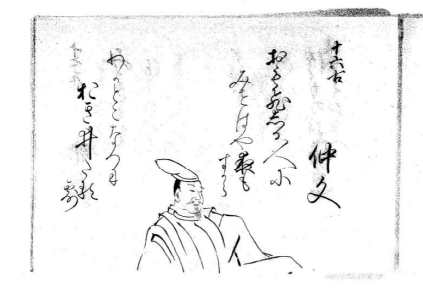 十六右
仲文
おもひしる人に
みせはや夜も
すから
わかとこなつに
おき井たる
露